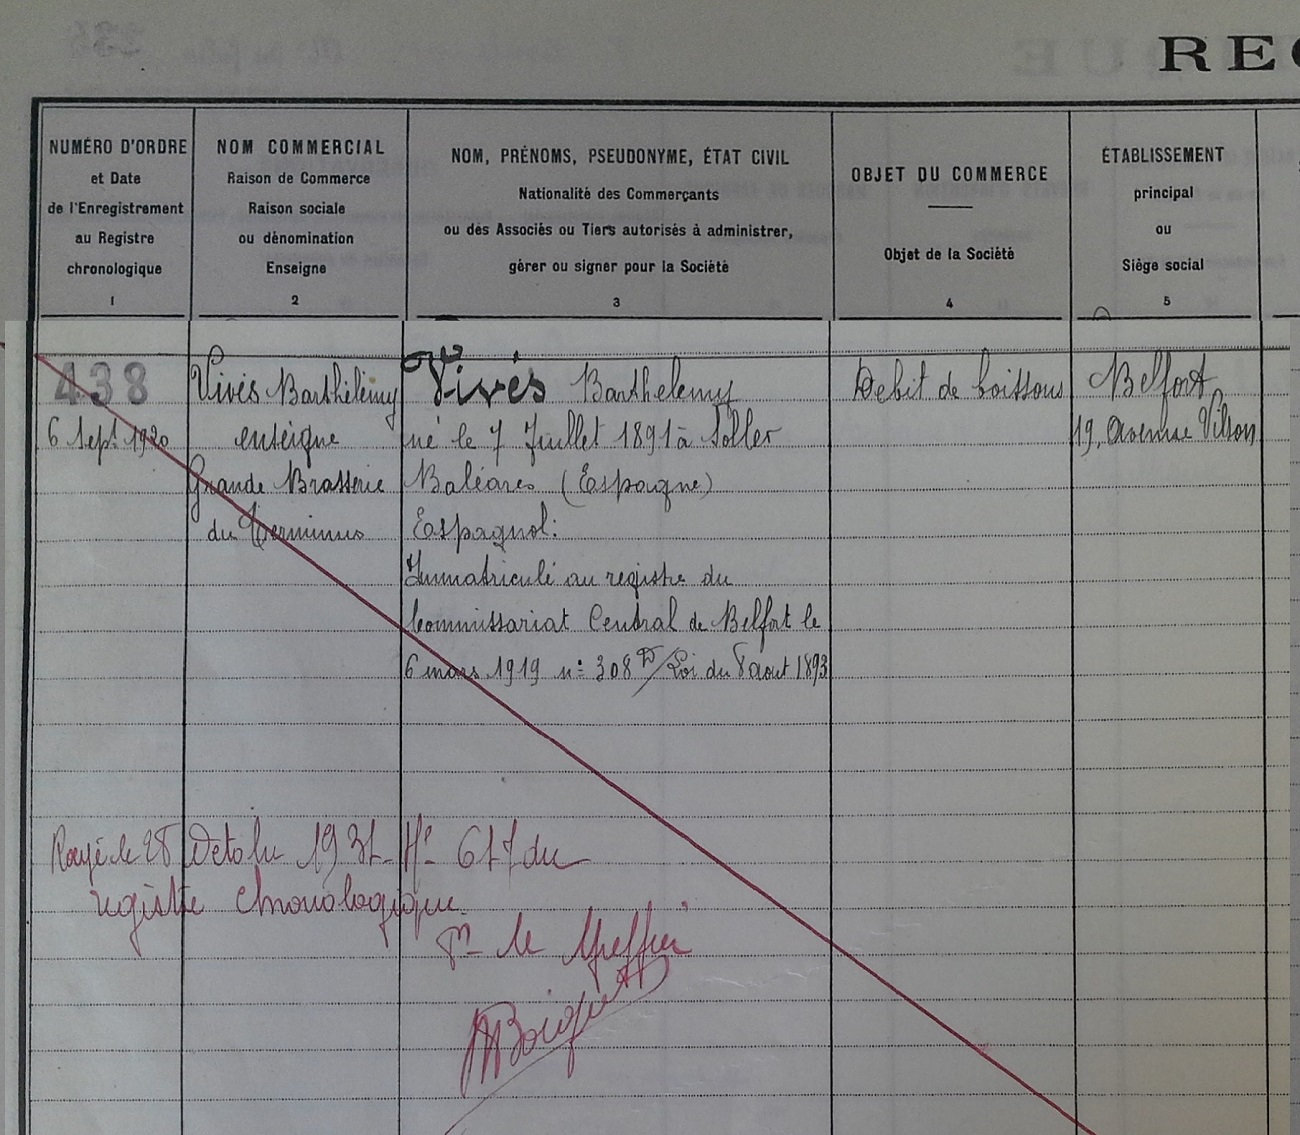 REG
NUMÉRO D'ORDRE
et Date
de l'Enregistrement
au Registre
chronologique
1
NOM COMMERCIAL
Raison de Commerce
Raison sociale
ou dénomination
Enseigne
2
NOM, PRÉNOMS, PSEUDONYME, ÉTAT CIVIL
Nationalité des Commerçants
ou des Associés ou Tiers autorisés à administrer,
gérer ou signer pour la Société
3
OBJET DU COMMERCE
Objet de la Société
4
ÉTABLISSEMENT
principal
ou
Siège social
5
438
6 Sept. 1920
Vivés Barthélemy
enseigne
Grande Brasserie
du Terminus
Vivés Barthelemy
né le 7 Juillet 1891 à Soller
Baléares (Espagne)
Espagnol.
Immatriculé au registre du
Commissariat Central de Belfort le
6 mars 1919 n° 308 D/Loi du 8 aout 1893
Debit de boissons
Belfort
19, avenue Vilson
Rayé le 28 Octobre 1931 N° 617 du
registre chronologique.
Pr le Greffier